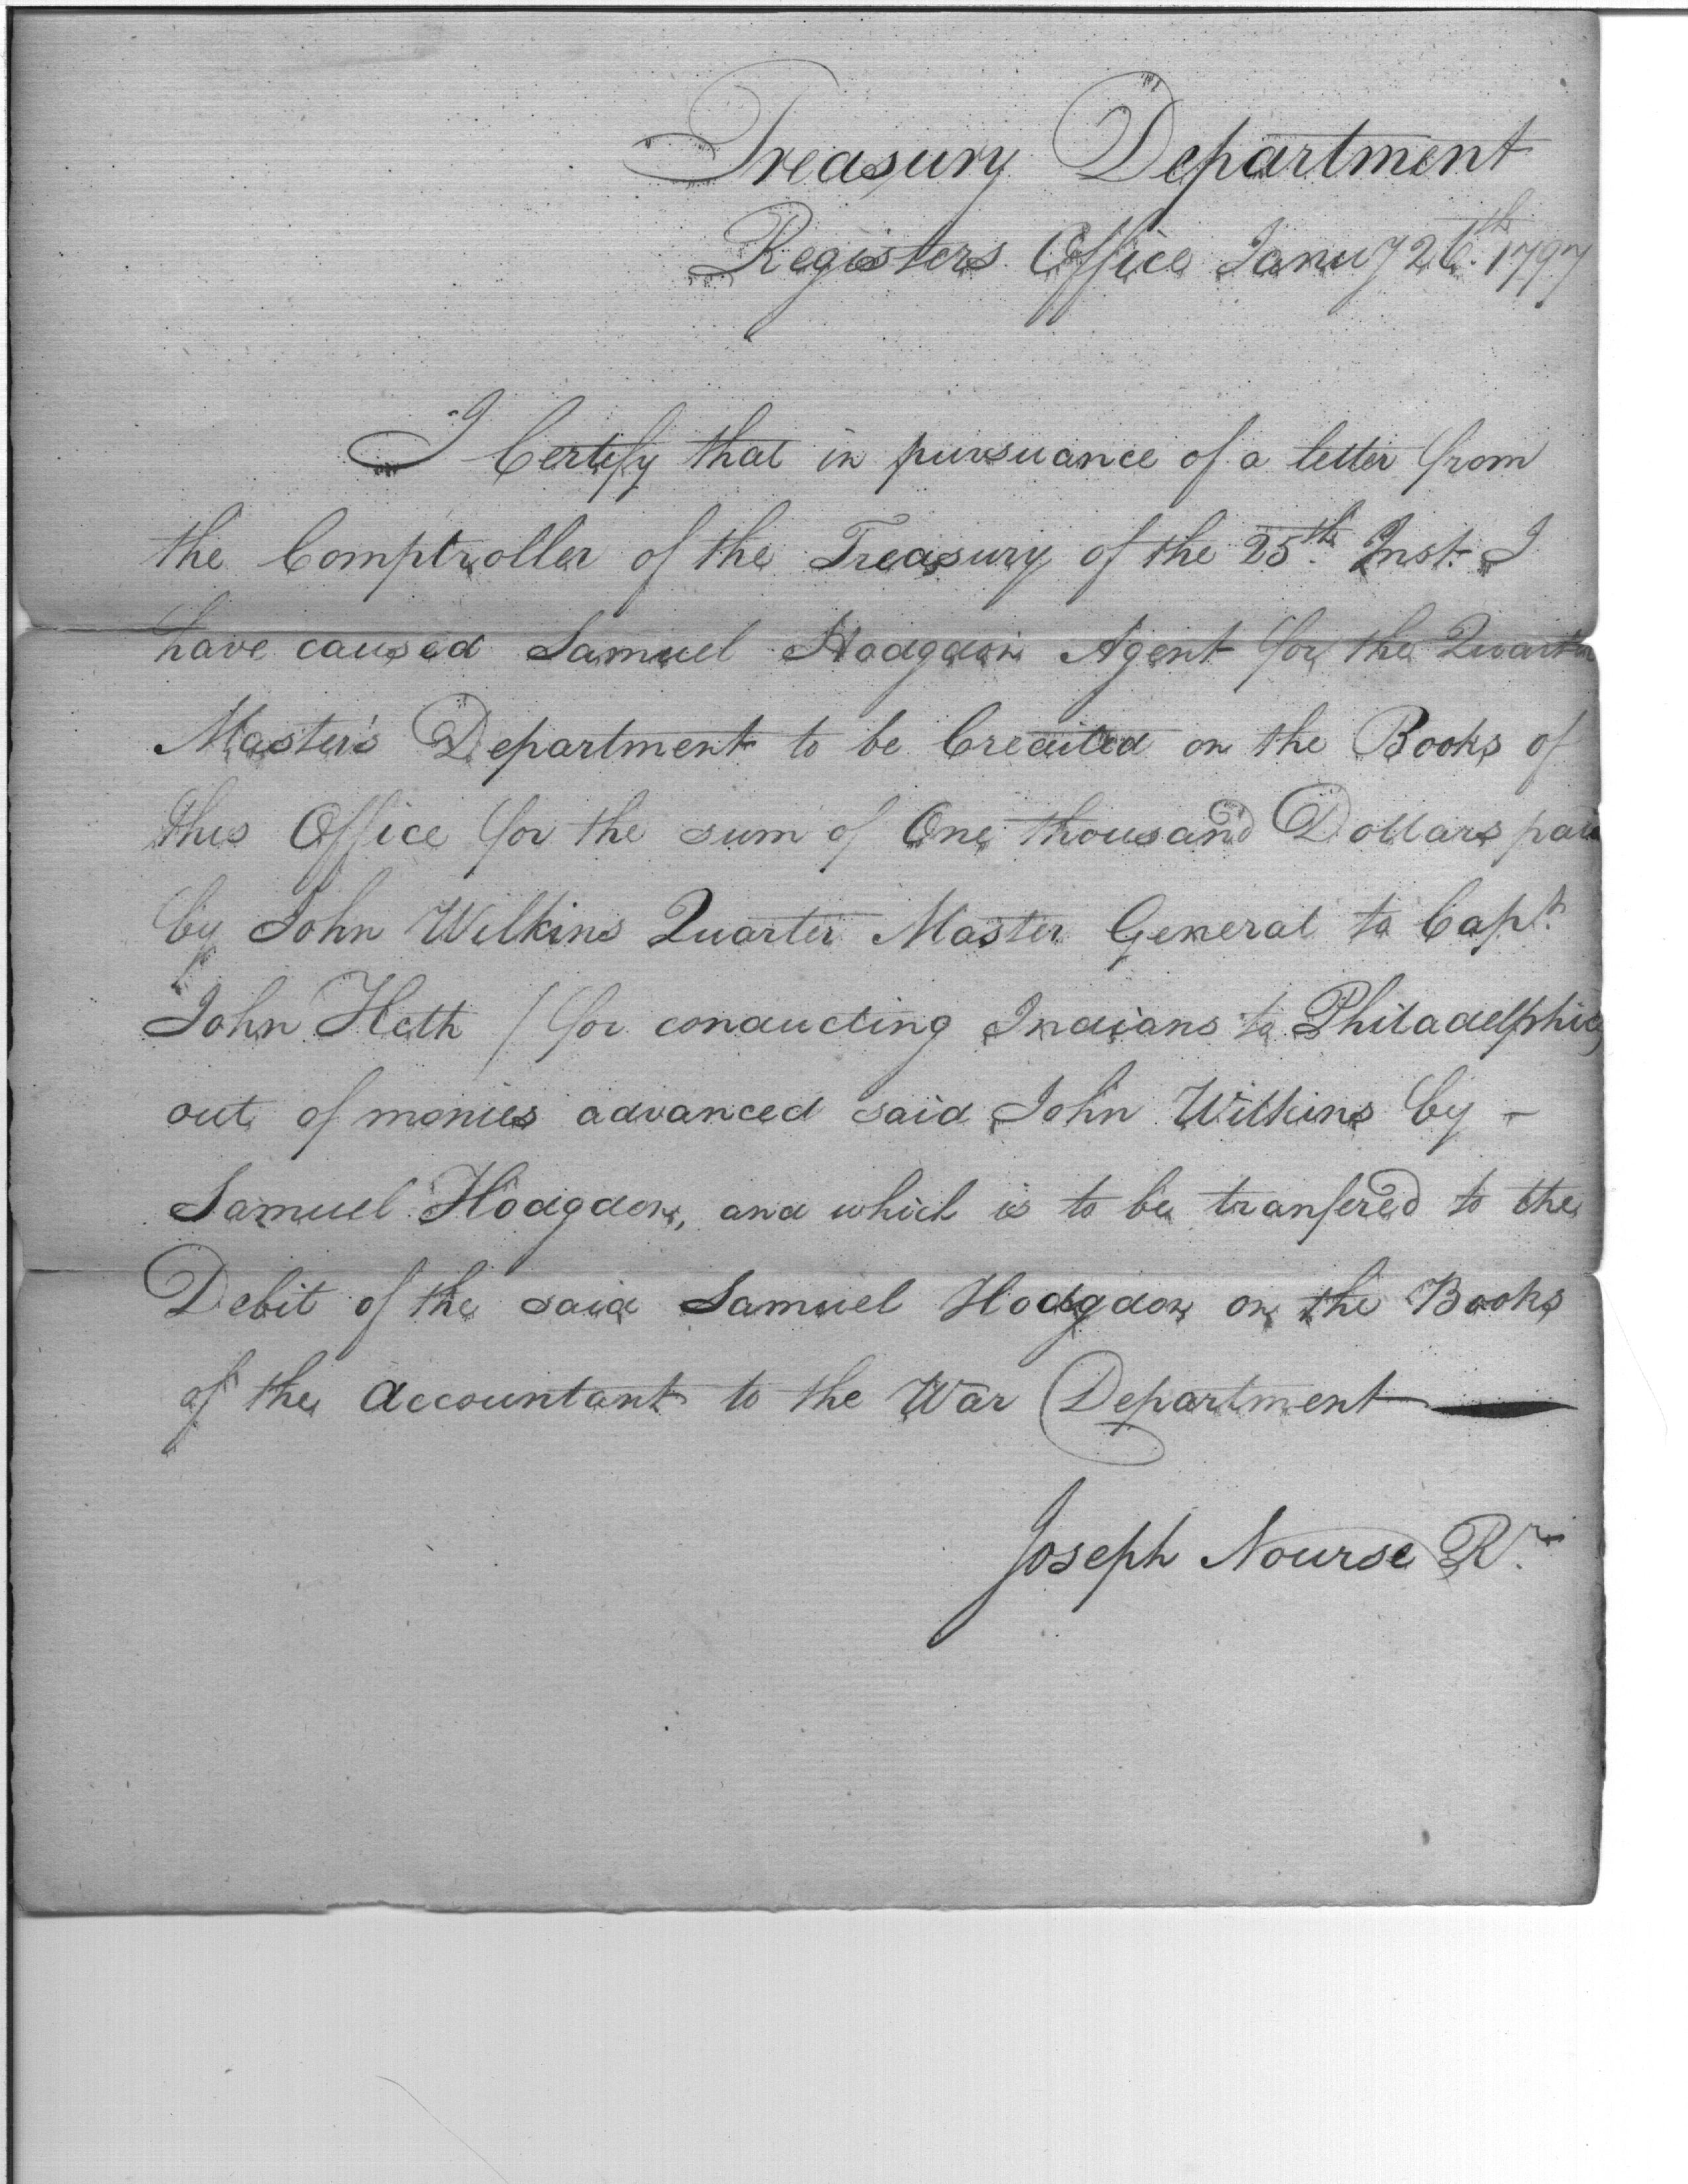 Treasury Department
Registers Office Januy 26th. 1797
I Certify that in pursuance of a letter from
the Comptroller of the Treasury of the 25th. Inst. I
have caused Samuel Hodgdon Agent for the Quarter
Master's Department to be Credited on the Books of
this Office for the sum of One thousand Dollars paid
by John Wilkins Quarter Master General to Capt.
John Heth / for conducting Indians to Philadelphia,
out of monies advanced said John Wilkins by -
Samuel Hodgdon, and which is to be transfered to the
Debit of the said Samuel Hodgdon on the Books
of the Accountant to the War Department —
Joseph Nourse Rr.